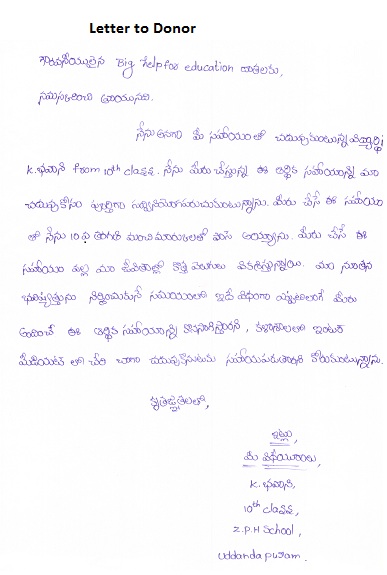 Letter to Donor
గౌరవనీయులైన Big help for education దాతలకు,
నమస్కరించి వ్రాయునది.
నేను అనగా మీ సహాయంతో చదువుకుంటున్న విద్యార్థిని
K.భవాని from 10th classన. నేను మీరు చేస్తున్న ఈ ఆర్థిక సహాయాన్ని మా
చదువుకోసం పూర్తిగా సద్వినియోగపరుచుకుంటున్నాను. మీరు చేసే ఈ సహాయం
తో నేను 10వ తరగతి మంచి మారుకులతో పాస్ అయ్యాను. మీరు చేసే ఈ
సహాయం వల్ల మా జీవితాల్లో కొత్త వెలుగులు వికసిస్తున్నాయి. మా నూతన
భవిష్యత్తును నిర్మించుకునే సమయంలో ఇదే విధంగా ఎల్లప్పటిలాగే మీరు
అందించే ఈ ఆర్థిక సహాయాన్ని కొనసాగిస్తారని, కళాశాలలో ఇంటర్
మీడియట్ లో చేరి బాగా చదువుకొనుటకు సహాయపడుతారని కోరుకుంటున్నాను.
కృతజ్ఞతలతో,
ఇట్లు
మీ విధేయురాలు,
K. భవాని,
10th classన,
Z.P.H School,
Uddandapuram.